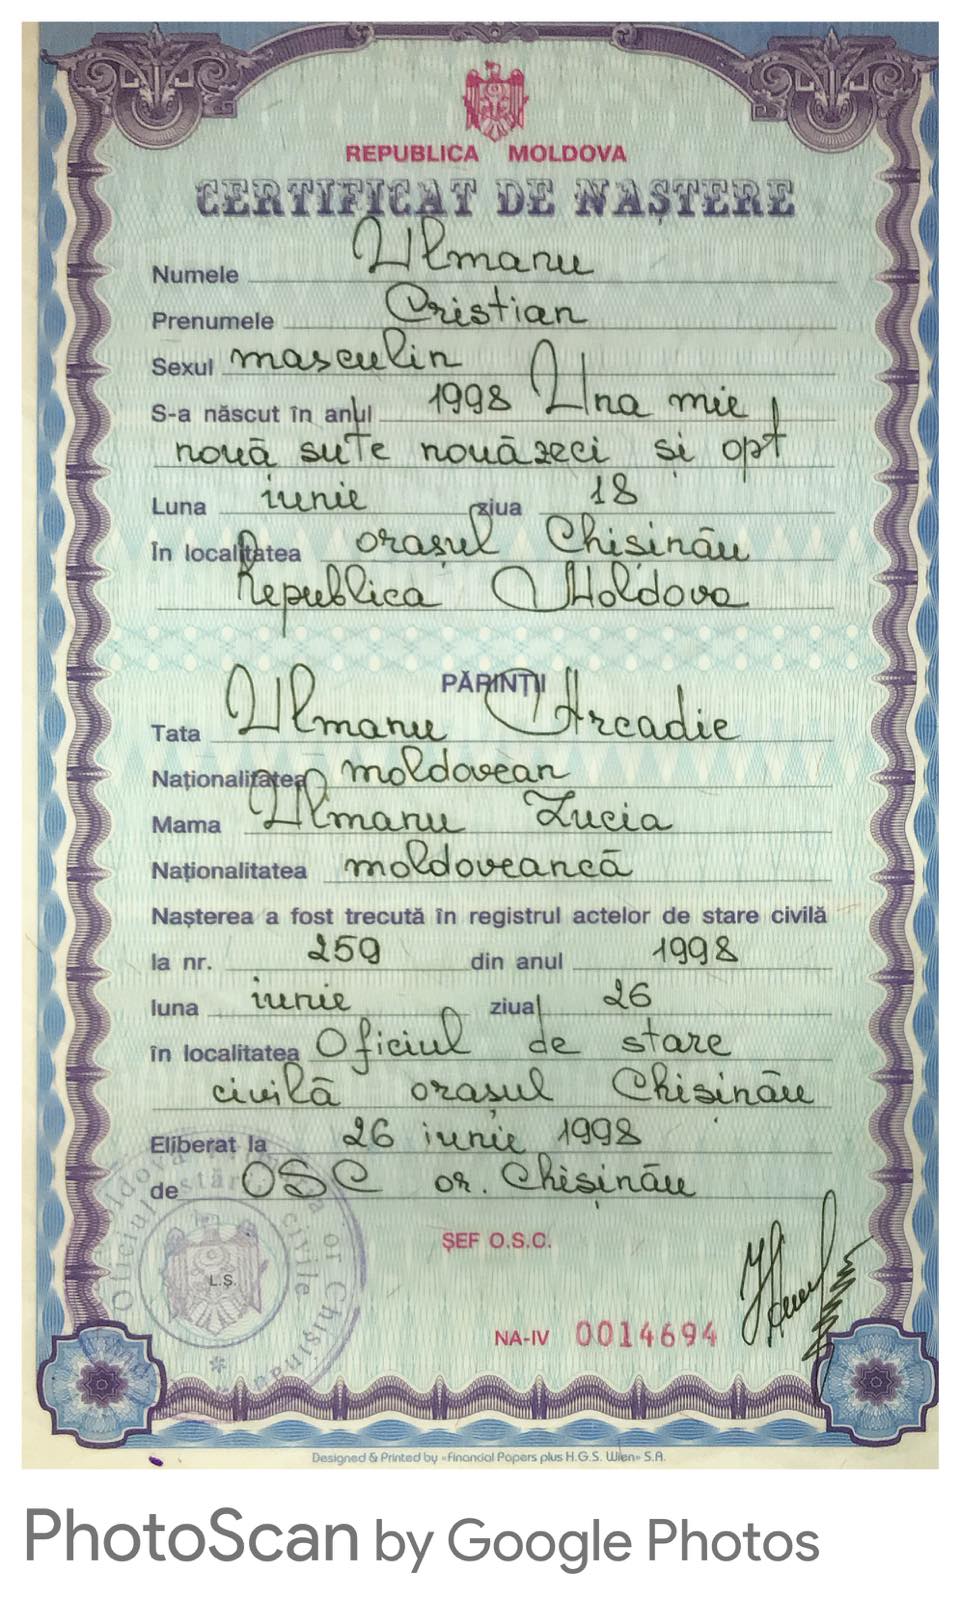 REPUBLICA MOLDOVA
CERTIFICAT DE NAȘTERE
Numele Ulmanu
Prenumele Cristian
Sexul masculin
S-a născut în anul 1998 Una mie
nouă sute nouăzeci și opt
Luna iunie ziua 18
În localitatea orașul Chișinău
Republica Moldova
PĂRINȚII
Tata Ulmanu Arcadie
Naționalitatea moldovean
Mama Ulmanu Lucia
Naționalitatea moldoveancă
Nașterea a fost trecută în registrul actelor de stare civilă
la nr. 259 din anul 1998
luna iunie ziua 26
în localitatea Oficiul de stare
civilă orașul Chișinău
Eliberat la 26 iunie 1998
de OSC or. Chișinău
ȘEF O.S.C.
L.Ș.
NA-IV 0014694
Designed & Printed by «Financial Papers plus H.G.S. Wien» S.A.
PhotoScan by Google Photos